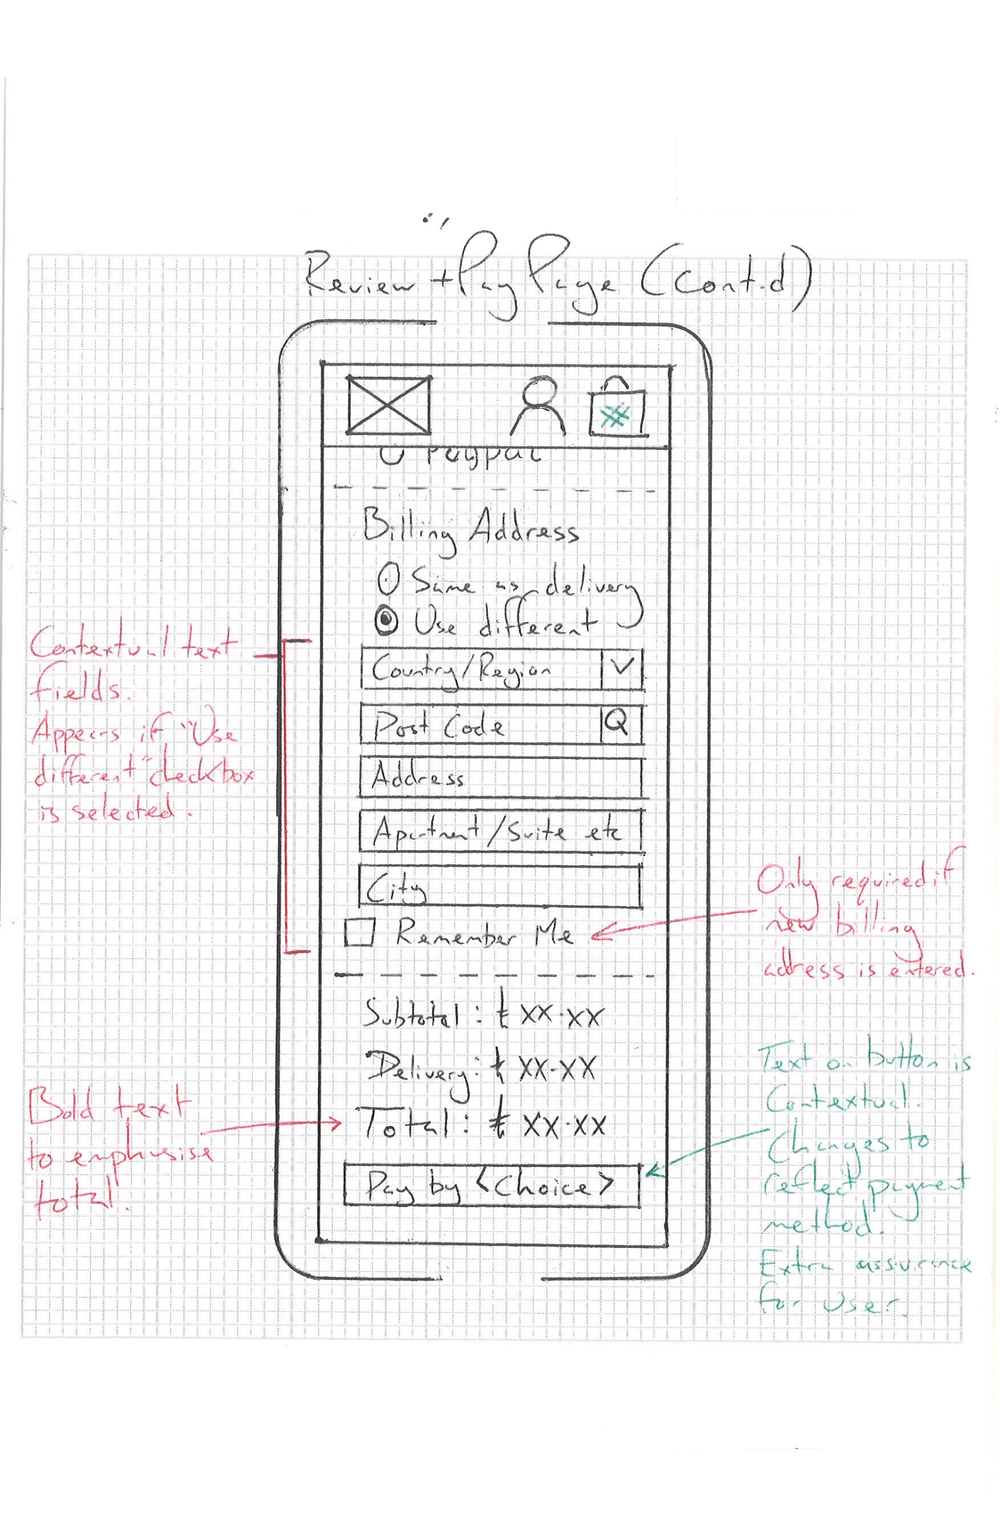 Review + Pay Page (Cont.d)
Paypal
Billing Address
Same as delivery
Use different
Country/Region
Post Code
Address
Apartment/Suite etc
City
Remember Me
Subtotal: £ XX.XX
Delivery: £ XX.XX
Total: £ XX.XX
Pay by <Choice>
Contextual text
fields.
Appears if "Use
different" checkbox
is selected.
Only required if
new billing
adress is entered.
Bold text
to emphasise
total.
Text on button is
Contextual.
Changes to
reflect payment
method.
Extra assurance
for user.